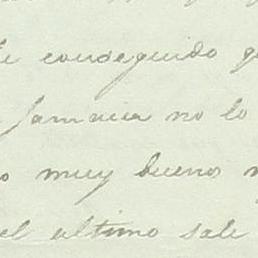 e conseguido q
Jamaica no lo
o muy buenos
el ultimo sale